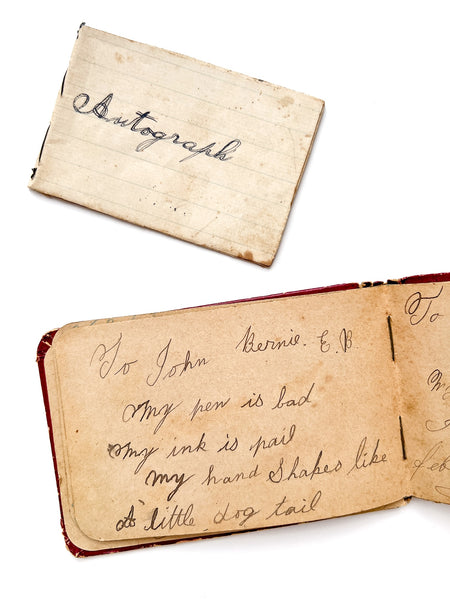 Autograph
To John Bernie. E, B.
My pen is bad
My ink is pail
My hand Shapes like
A little dog tail
To
My
feb